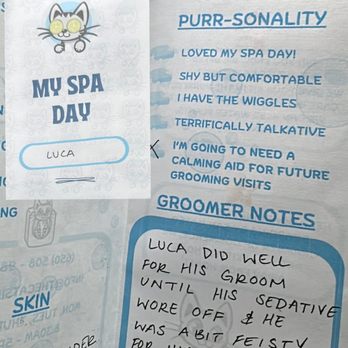 MY SPA
DAY
LUCA
PURR-SONALITY
LOVED MY SPA DAY!
SHY BUT COMFORTABLE
I HAVE THE WIGGLES
TERRIFICALLY TALKATIVE
X I'M GOING TO NEED A
CALMING AID FOR FUTURE
GROOMING VISITS
GROOMER NOTES
LUCA DID WELL
FOR HIS GROOM
UNTIL HIS SEDATIVE
WORE OFF & HE
WAS A BIT FEISTY
FOR
NG
SKIN